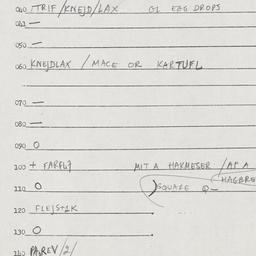 040 TRIF/KNEJD/LAX GL EGG DROPS
041 —
050 —
060 KNEJDLAX / MACE OR KARTUFL
070 —
080 —
090 O
100 + FARFL MIT A HAKMESER /AF A
HAGBRE
110 O SQUARE
120 FLEJSTIK
130 O
140 PAREV /2/